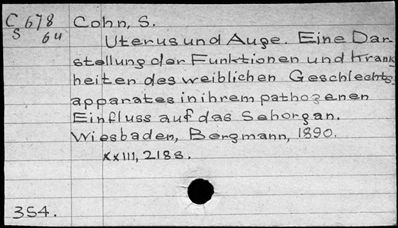 C 678 Cohn, S.
S 6u Uterus und Auge. Eine Dar-
stellung der Funktionen und Krank-
heiten des weiblichen Geschlechts-
apparates in ihrem pathogenen
Einfluss auf das Sehorgan.
Wiesbaden, Bergmann, 1890.
xxiii, 218s.
354.